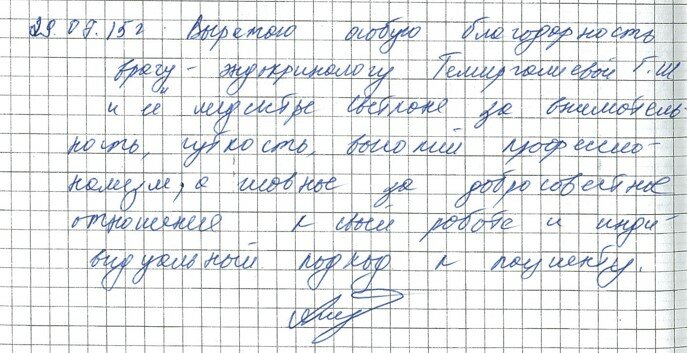 29.07.15г. Выражаю особую благодарность
врачу - эндокринологу Темиргалиевой Г.Ш
и её медсестре Светлане за вниматель-
ность, чуткость, высокий професссио-
нализм, а главное за добросовестное
отношение к своей работе и инди-
видуальный подход к пациенту.